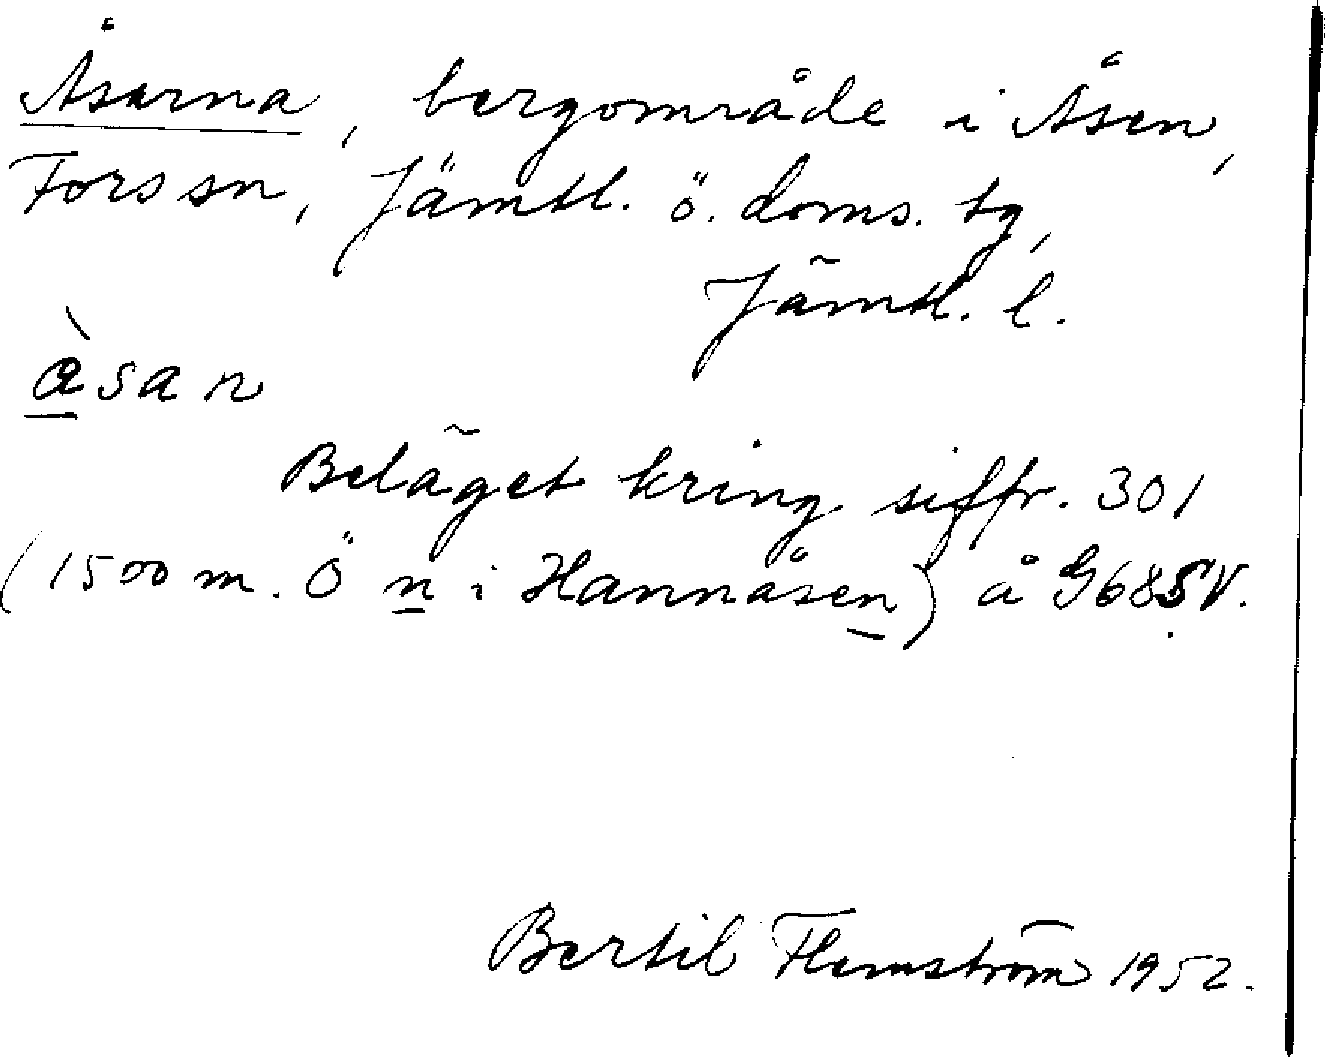 Åsarna, bergområde i Åsen,
Fors sn, Jämtl. ö. doms. tg,
Jämtl. l.
àsan
Beläget kring siffr. 301
(1500 m. Ö n i Hannåsen) å G68SV.
Bertil Flemström 1952.